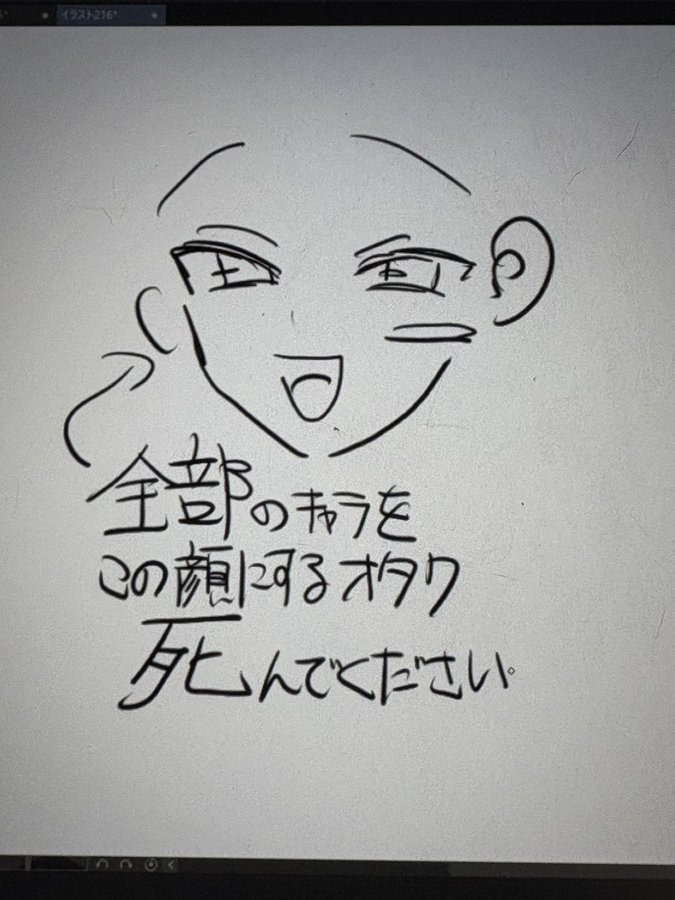 イラスト216*
全部のキャラを
この顔にするオタク
死んでください。